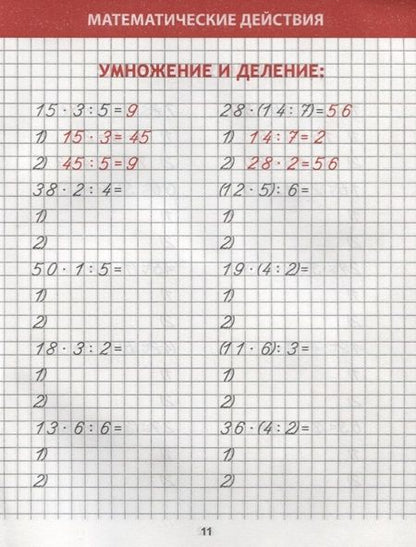 МАТЕМАТИЧЕСКИЕ ДЕЙСТВИЯ
УМНОЖЕНИЕ И ДЕЛЕНИЕ:
15 · 3 : 5 = 9
1) 15 · 3 = 45
2) 45 : 5 = 9
38 · 2 : 4 =
1)
2)
50 · 1 : 5 =
1)
2)
18 · 3 : 2 =
1)
2)
13 · 6 : 6 =
1)
2)
28 · (14 : 7) = 56
1) 14 : 7 = 2
2) 28 · 2 = 56
(12 · 5) : 6 =
1)
2)
19 · (4 : 2) =
1)
2)
(11 · 6) : 3 =
1)
2)
36 · (4 : 2) =
1)
2)
11